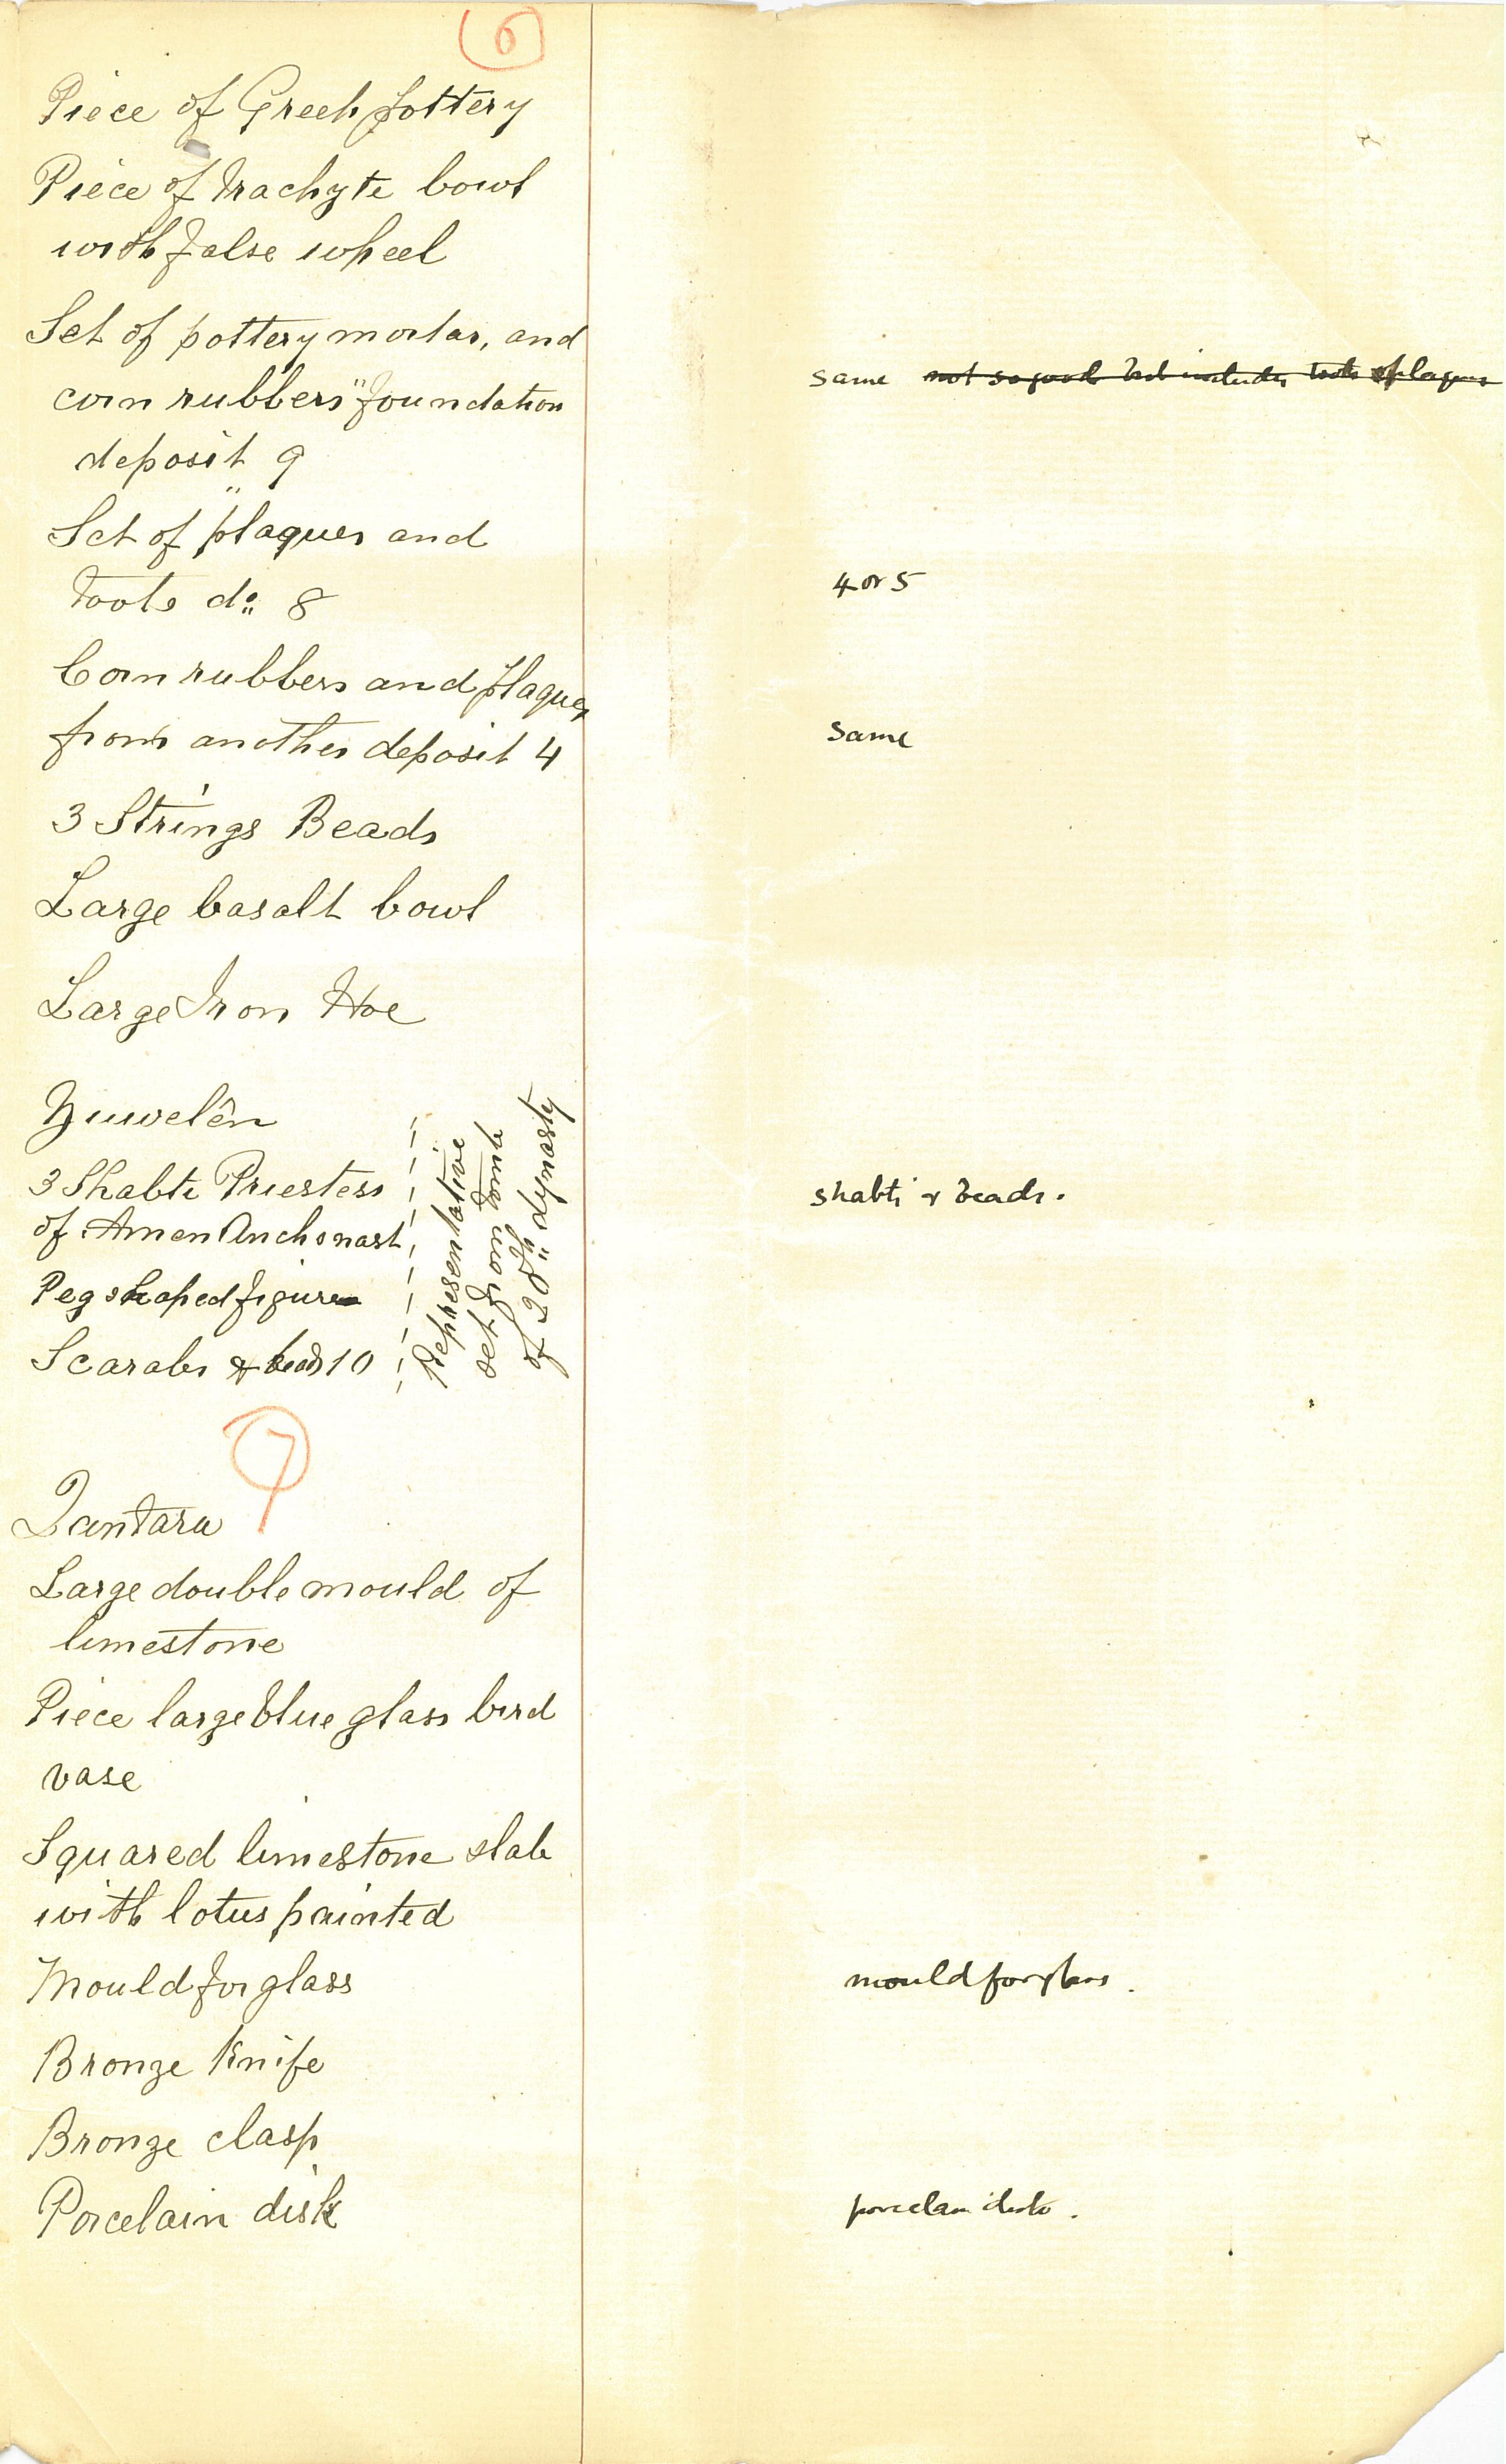 6
Piece of Greek pottery
Piece of trachyte bowl
with false wheel
Set of pottery mortar, and
corn rubbers "foundation
same not so good but includes tools & plaques
deposit 9
Set of plaques and
tools do. 8
4 or 5
Corn rubbers and plaques
from another deposit 4
same
3 Strings Beads
Large basalt bowl
Large Iron Hoe
Zuwelên
3 Shabti Priestess
of Amen Anchsnast
shabti & beads.
Peg shaped figure
Scarabs & beads 10
Representative
set from tomb
of 20" dynasty
7
Qantara
Large double mould of
limestone
Piece large blue glass bird
vase
Squared limestone slab
with lotus painted
Mould for glass
mould for glass.
Bronze Knife
Bronze clasp
Porcelain disk
porcelain disk.